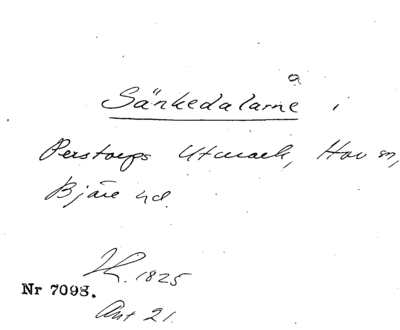 Sänkedalarne i
a
Perstorps Utmark, Hov sn,
Bjäre hd.
H. 1825
Nr 7098.
Ant 21.